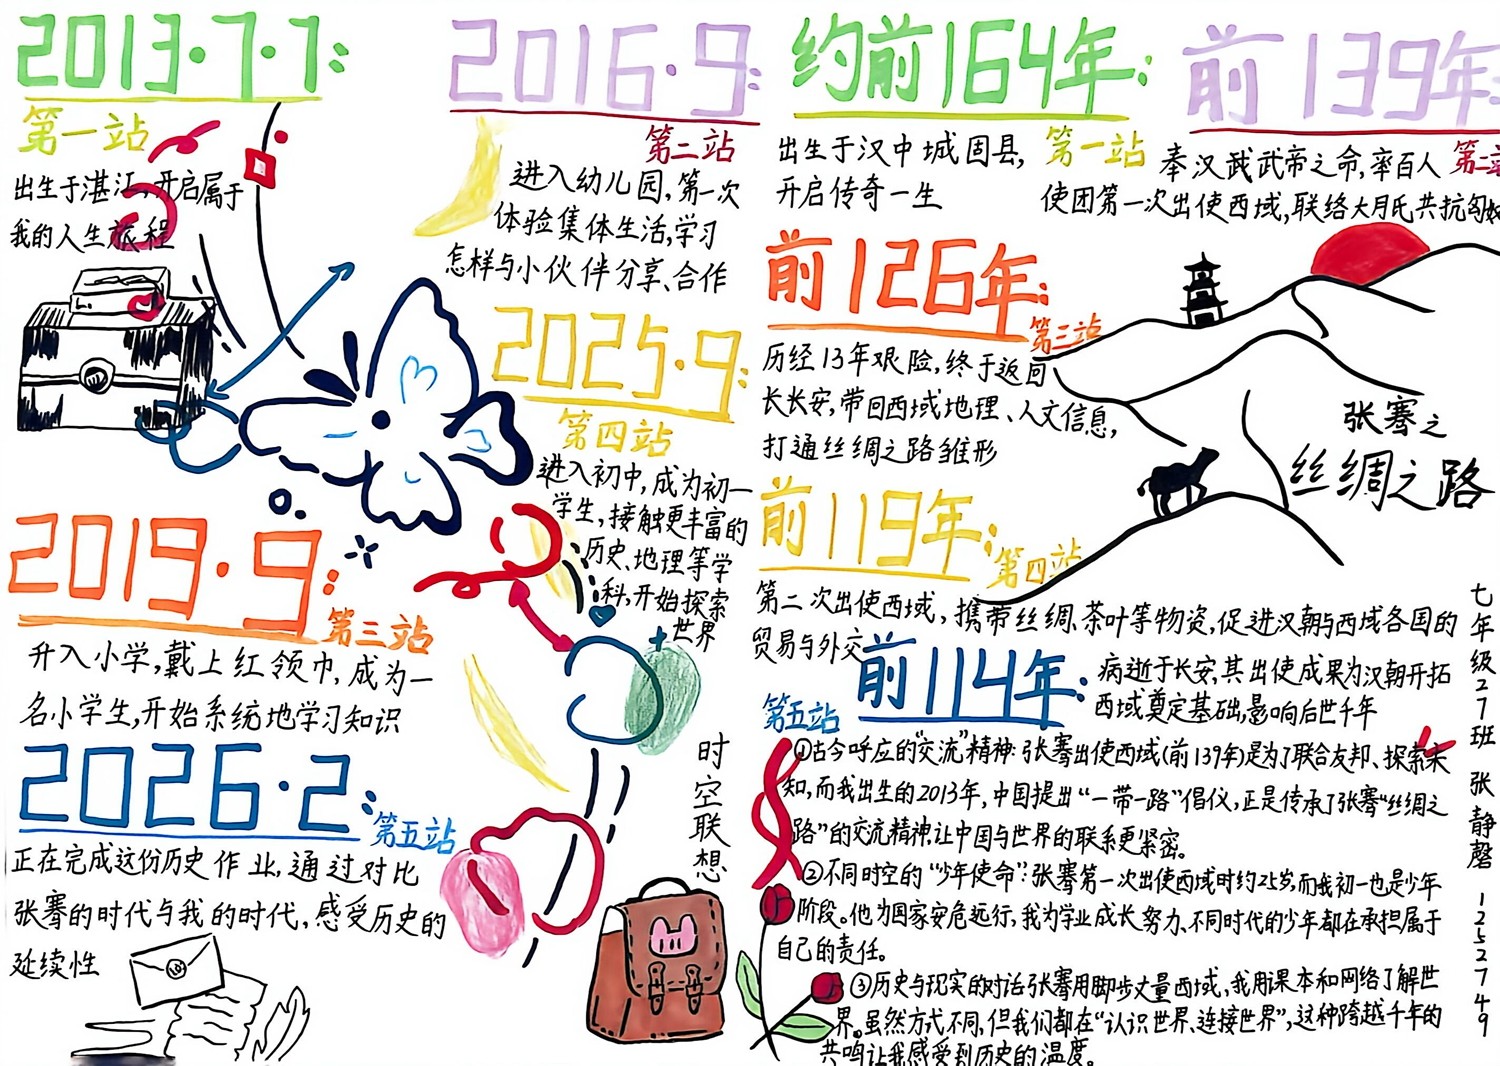 2013·7·7:
第一站
出生于湛江,开启属于
我的人生旅程
2016·9:
第二站
进入幼儿园,第一次
体验集体生活,学习
怎样与小伙伴分享、合作
2019·9:
第三站
升入小学,戴上红领巾,成为一
名小学生,开始系统地学习知识
2025·9:
第四站
进入初中,成为初一
学生,接触更丰富的
历史、地理等学
科,开始探索
世界
2026·2:
第五站
正在完成这份历史作业,通过对比
张骞的时代与我的时代,感受历史的
延续性
时空联想
约前164年:
出生于汉中城固县,
开启传奇一生
第一站
前139年:
奉汉武武帝之命,率百人
第二站
使团第一次出使西域,联络大月氏共抗匈奴
前126年:
第三站
历经13年艰险,终于返回
长长安,带回西域地理、人文信息,
打通丝绸之路雏形
张骞之
丝绸之路
前119年:
第四站
第二次出使西域,携带丝绸、茶叶等物资,促进汉朝与西域各国的
贸易与外交
前114年:
第五站
病逝于长安,其出使成果为汉朝开拓
西域奠定基础,影响后世千年
①古今呼应的“交流”精神:张骞出使西域(前139年)是为了联合友邦、探索未
知,而我出生的2013年,中国提出“一带一路”倡仪,正是传承了张骞“丝绸之
路”的交流精神,让中国与世界的联系更紧密。
②不同时空的“少年使命”:张骞第一次出使西域时约25岁,而我初一也是少年
阶段。他为国家安危远行,我为学业成长努力、不同时代的少年都在承担属于
自己的责任。
③历史与现实的对话张骞用脚步丈量西域,我用课本和网络了解世
界。虽然方式不同,但我们都在“认识世界、连接世界”,这种跨越千年的
共鸣让我感受到历史的温度。
七年级27班 张静磬 12527749